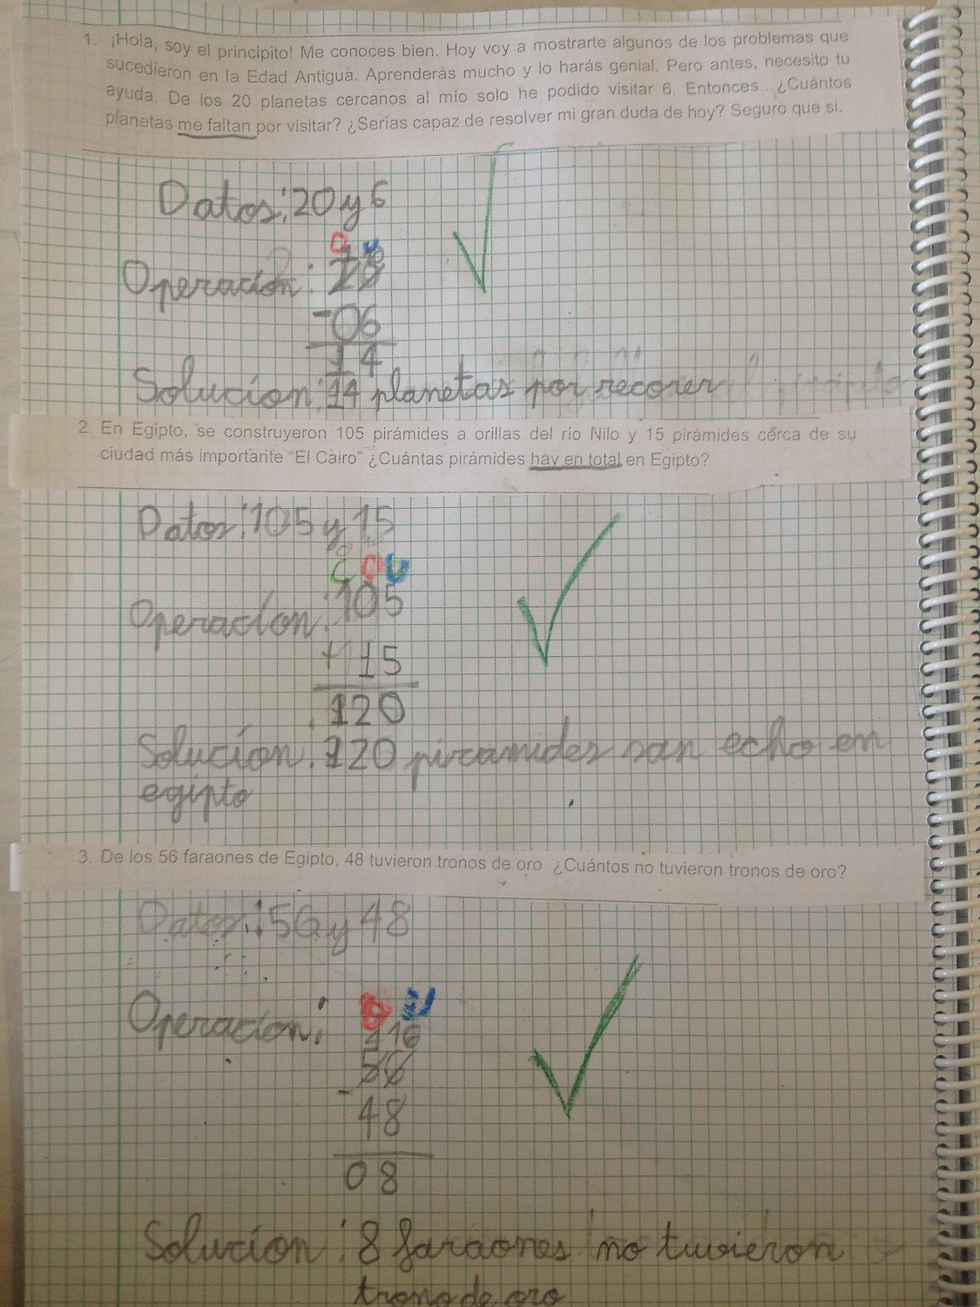 1. ¡Hola, soy el principito! Me conoces bien. Hoy voy a mostrarte algunos de los problemas que
sucedieron en la Edad Antigua. Aprenderás mucho y lo harás genial. Pero antes, necesito tu
ayuda. De los 20 planetas cercanos al mío solo he podido visitar 6. Entonces... ¿Cuántos
planetas me faltan por visitar? ¿Serías capaz de resolver mi gran duda de hoy? Seguro que si.
Datos: 20 y 6
D U
1 10
Operación: 20
- 06
14
Solución: 14 planetas por recorer
2. En Egipto, se construyeron 105 pirámides a orillas del río Nilo y 15 pirámides cerca de su
ciudad más importante "El Cairo" ¿Cuántas pirámides hay en total en Egipto?
Datos: 105 y 15
C D U
Operación: 105
+ 15
120
Solución: 120 piramides san echo en
egipto
3. De los 56 faraones de Egipto, 48 tuvieron tronos de oro ¿Cuántos no tuvieron tronos de oro?
Datos: 56 y 48
D U
Operación:
16
56
- 48
08
Solución: 8 faraones no tuvieron
trono de oro